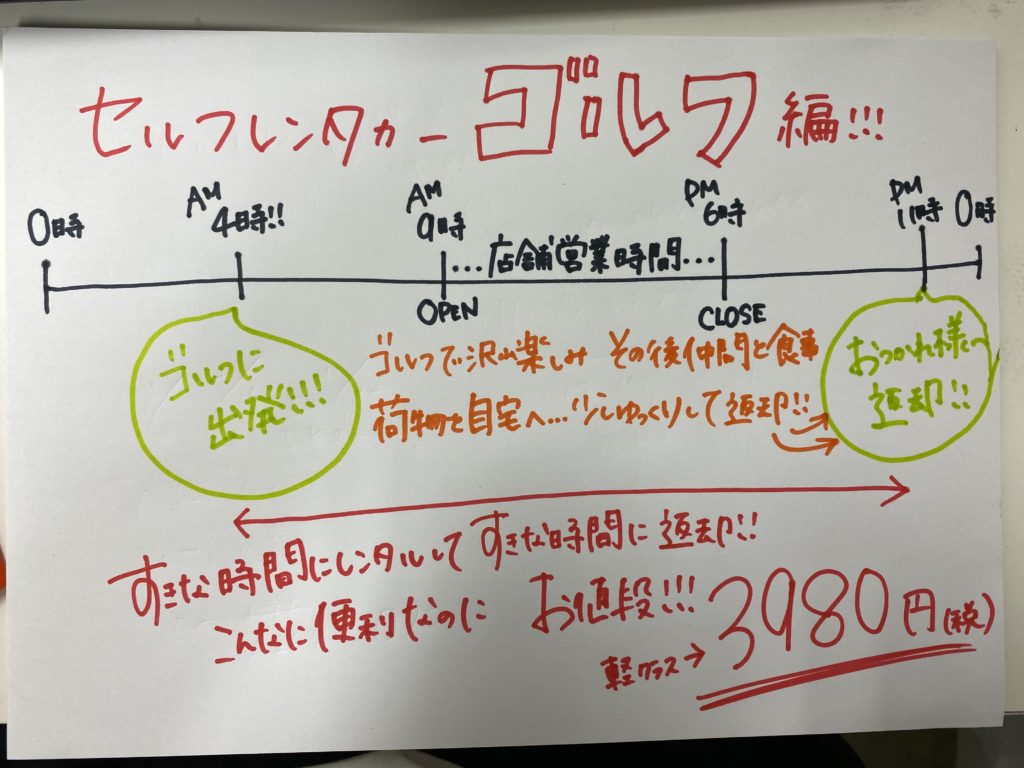 セルフレンタカー ゴルフ 編!!!
0時 AM 4時!! AM 9時 PM 6時 PM 11時 0時
...店舗営業時間...
OPEN CLOSE
ゴルフに
出発!!!
ゴルフで沢山楽しみ その後仲間と食事
荷物を自宅へ...少しゆっくりして返却!!
おつかれ様〜
返却!!
すきな時間にレンタルして すきな時間に返却!!
こんなに便利なのに お値段!!!
軽クラス→ 3980円(税)